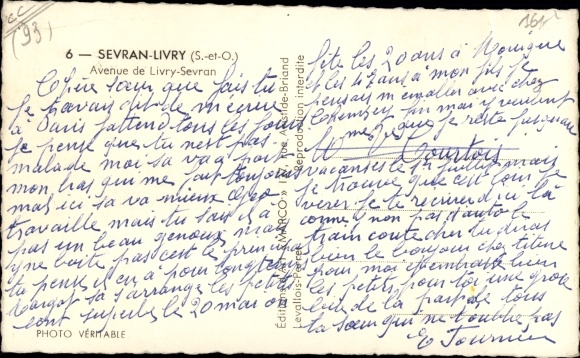 (93)
6 — SEVRAN-LIVRY (S.-et-O.)
Avenue de Livry-Sevran
Chère sœur que fais tu
je t'avais dit de m'écrire
à Paris j'attend tous les jours
je pense que tu n'est pas
malade moi sa va a part
mon bras qui me fait toujours
mal ici sa va mieux
travaille mais tu sais il a
pas un beau genoux mais
y ne boite pas c'est le principal
tu pense il en a pour longtemps
Margot sa s'arrange les petits
sont jusque le 20 mai on
PHOTO VÉRITABLE
Éditions d'Art « MARCO » rue Aristide-Briand
Levallois-Perret Reproduction interdite
fête les 20 ans à Monique
et les 42 ans a mon fils je
pensais m'en aller avec chez
mais il veulent
que je reste jusqu'au
Courtois
vacances le 1er juillet mais
je trouve que c'est loin je
verrai je te recrirer d'ici la
comme non pas d'auto le
train coute cher tu diras
bien le bonjour chez titine
pour moi embrasse bien
les petits pour toi une grosse
bise de la part de tous
ta sœur qui ne t'oublie pas
E Fournier